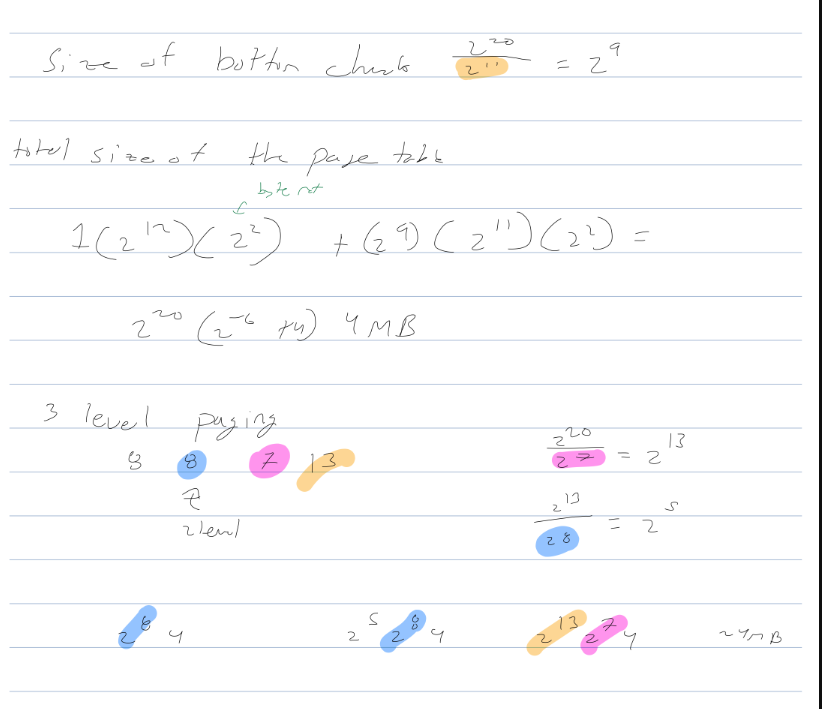 Size of bottom chunk 2^20 / 2^11 = 2^9
total size of the page table
byte not
1(2^12)(2^2) + (2^9)(2^11)(2^2) =
2^20 (2^-6 +4) 4 MB
3 level paging
8 8 7 13
2^20 / 2^7 = 2^13
2 level
2^13 / 2^8 = 2^5
2^8 4 2^5 2^8 4 2^13 2^7 4 ~4MB